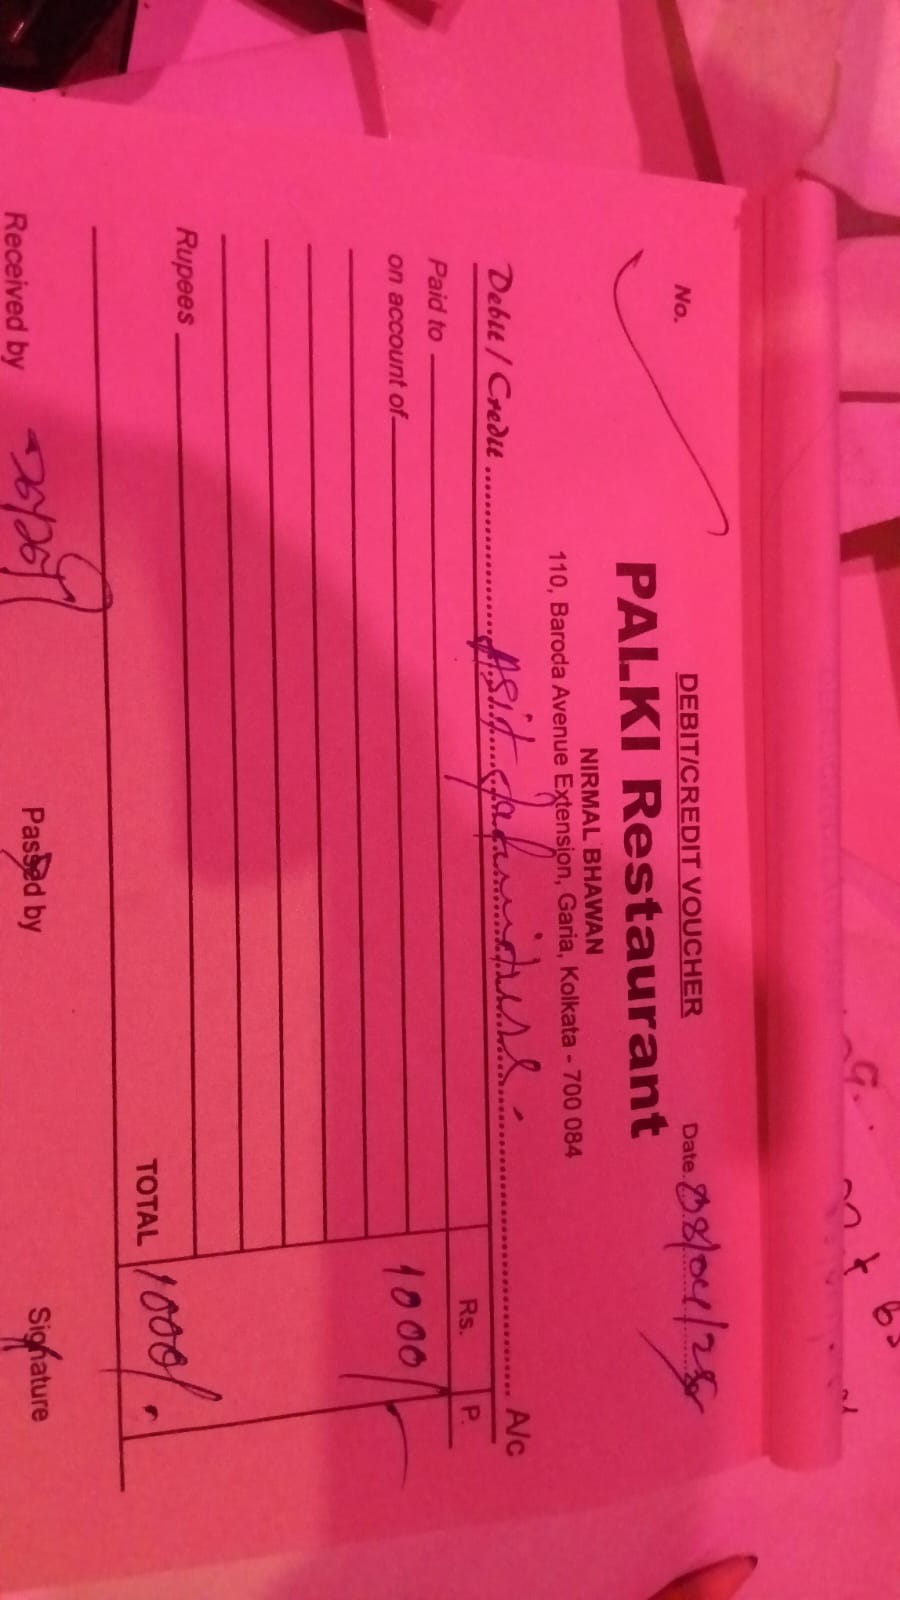 DEBIT/CREDIT VOUCHER
No. Date 08/04/25
PALKI Restaurant
NIRMAL BHAWAN
110, Baroda Avenue Extension, Garia, Kolkata - 700 084
Debit / Credit Asit A/c
Rs. P.
Paid to
on account of 1000/-
Rupees
TOTAL 1000/-
Received by Passed by Signature